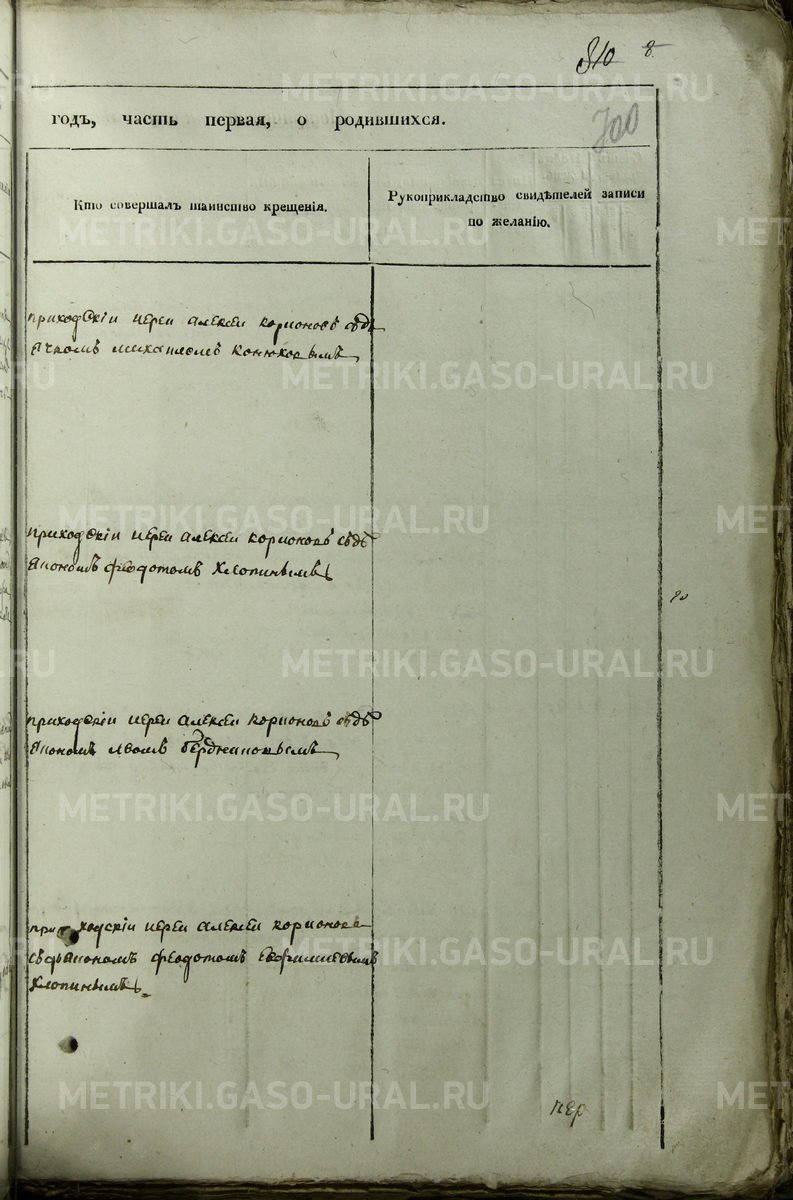 810 8
700
годъ, часть первая, о родившихся.
Кто совершалъ таинство крещенія.
Рукоприкладство свидѣтелей записи
по желанію.
приходскіи иереи алексеи корионовъ съдь
ячкомъ михаиломъ конюховымъ
приходскіи иереи алексеи корионовъ съдь
якономъ феодотомъ хлопинымъ
приходскіи иереи алексеи корионовъ съдь
якономъ львомъ бердниковымъ
приходскіи иереи алексеи корионовъ
съдьякономъ феодотомъ
хлопинымъ
METRIKI.GASO-URAL.RU